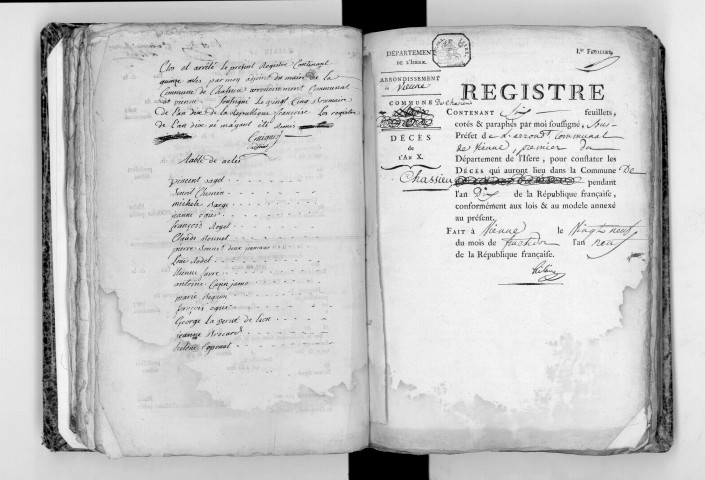 Clos et arrêté le présent Registre Contenant
quinze actes par moi adjoint du maire de la
Commune de Chassieu arrondissement Communal
de vienne soussigné le vingt Cinq Brumaire
de l'an dix de la République française Les registres
de l'an dix
Table de actes
vincent
Benoit Chemin
michele
jeanne ogier
françois
Claude Bonnet
pierre Bonnet
Louis
Etienne favre
antoine
marie
françois ogier
George la
jeanne Brocard
DÉPARTEMENT
DE L'ISÈRE.
ARRONDISSEMENT
de Vienne
COMMUNE de Chassieu
DÉCÈS
DE
L'AN X.
1.er FEUILLET.
REGISTRE
CONTENANT Six feuillets,
cotés & paraphés par moi soussigné, Sous-
Préfet de L'arrond.t Communal
de Vienne, premier du
Département de l'Isere, pour constater les
DÉCÈS qui auront lieu dans la Commune De
Chassieu pendant
l'an Dix de la République française,
conformément aux lois & au modele annexé
au présent.
FAIT à Vienne le Vingt neuf
du mois de fructidor l'an neuf
de la République française.